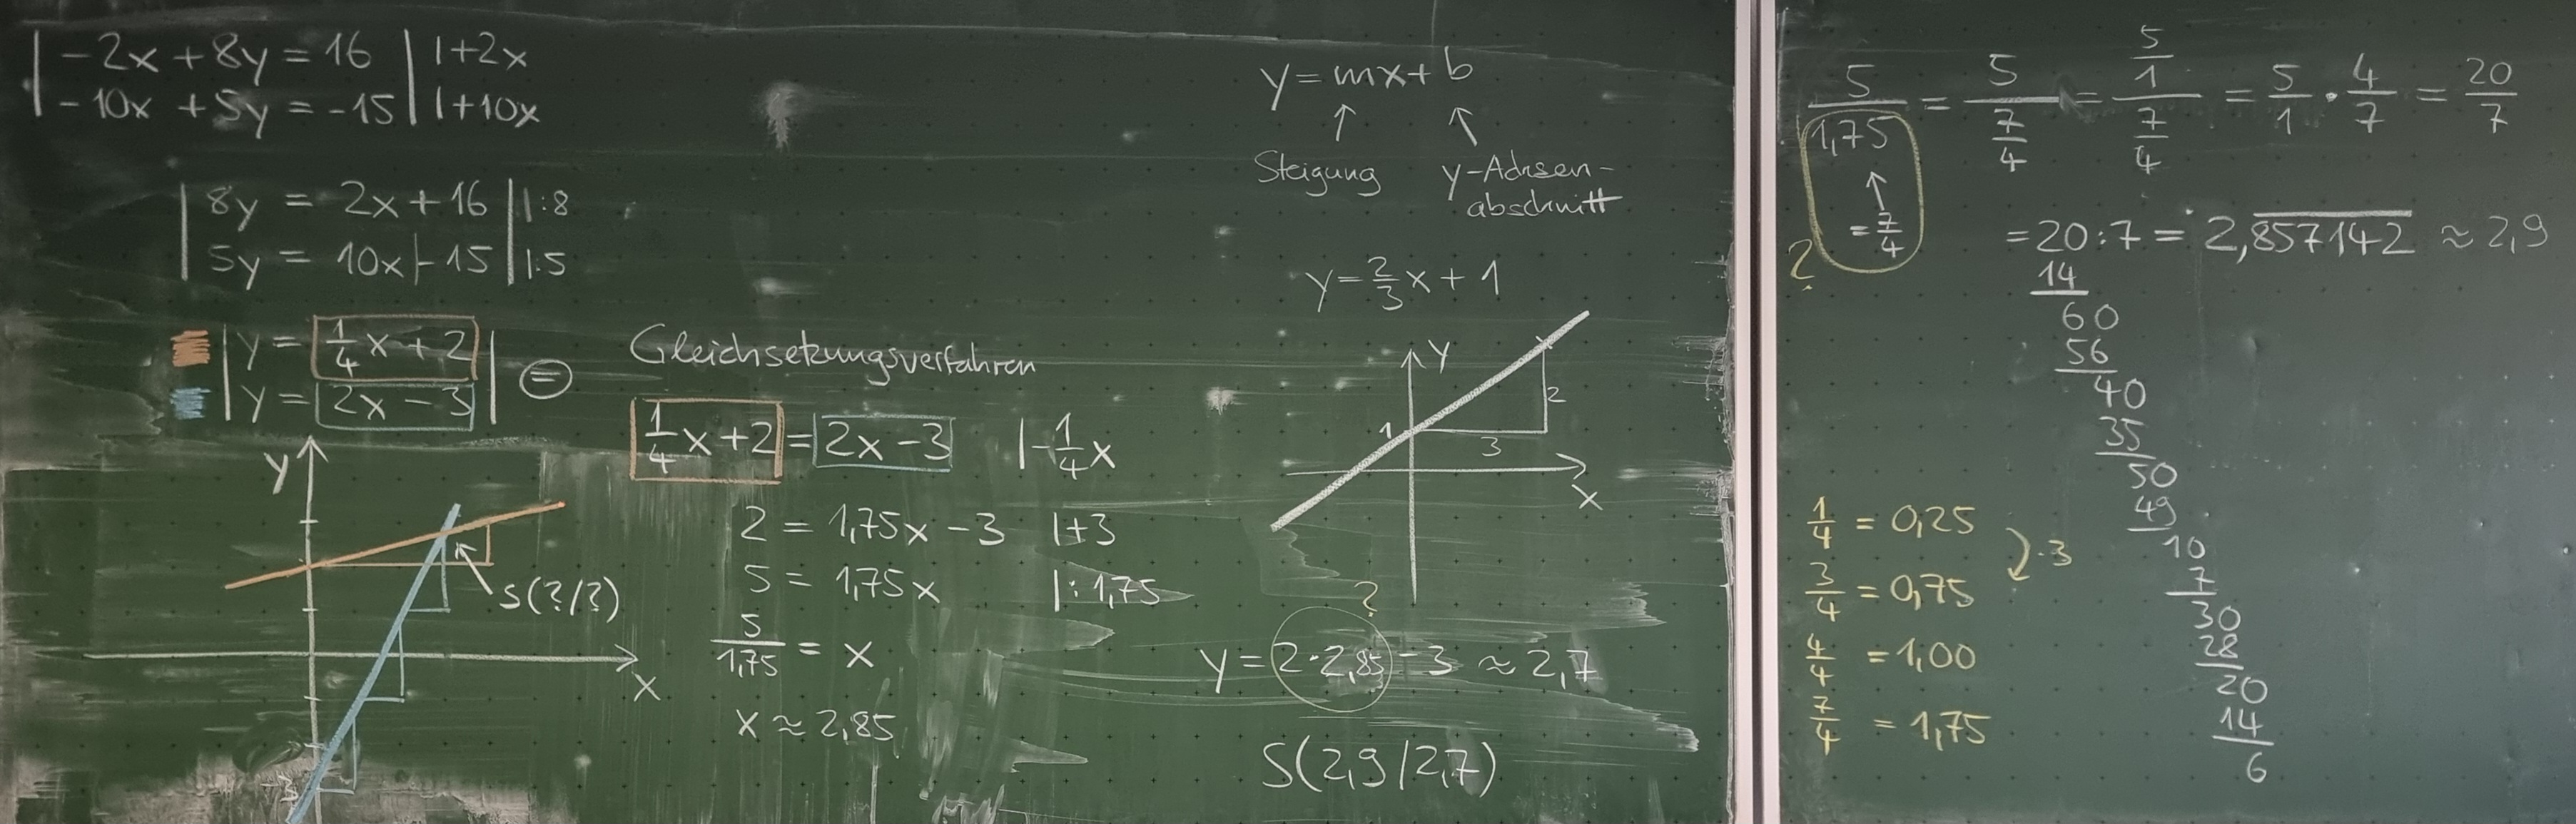 | -2x + 8y = 16 | |+2x
| -10x + 5y = -15 | |+10x
| 8y = 2x + 16 | |:8
| 5y = 10x - 15 | |:5
| y = 1/4 x + 2 |
| y = 2x - 3 | =
y
x
S(?/?)
Gleichsetzungsverfahren
1/4 x + 2 = 2x - 3 |-1/4 x
2 = 1,75x - 3 |+3
5 = 1,75x |:1,75
5/1,75 = x
x ≈ 2,85
y = mx + b
↑ ↑
Steigung y-Achsen-
abschnitt
y = 2/3 x + 1
y
1
2
3
x
?
y = 2·2,85 - 3 ≈ 2,7
S(2,9/2,7)
5/1,75 = 5/(7/4) = (5/1)/(7/4) = 5/1 · 4/7 = 20/7
↑
= 7/4
?
= 20:7 = 2,8̅5̅7̅1̅4̅2̅ ≈ 2,9
14
60
56
40
35
50
49
10
7
30
28
20
14
6
1/4 = 0,25
·3
3/4 = 0,75
4/4 = 1,00
7/4 = 1,75